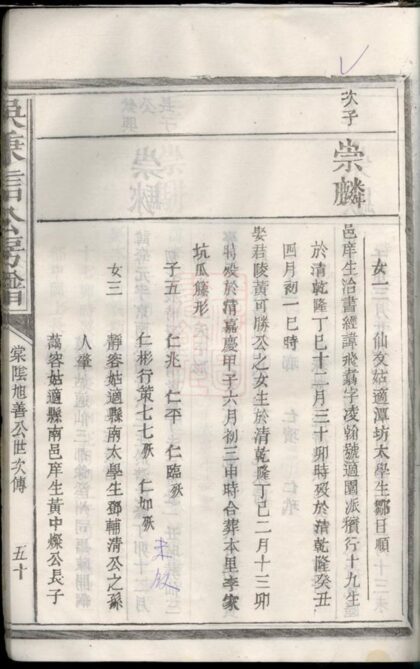 次子
崇麟
女一 仙友姑適潭坊太學生鄒日順
邑庠生治書經諱飛翥字凌翰號適園派獷行十九生
於清乾隆丁巳十二月三十卯時歿於清乾隆癸丑
四月初一巳時
娶君陵黃可勝公之女生於清乾隆丁巳二月十三卯
時歿於清嘉慶甲子六月初三申時合葬本里李家
坑瓜藤形
子五 仁兆 仁平 仁臨
仁彬行策七七 仁如
女三 靜容姑適縣南太學生鄧輔清公之孫
人肇
藹容姑適縣南邑庠生黃中燦公長子
棠陰旭善公世次傳
五十